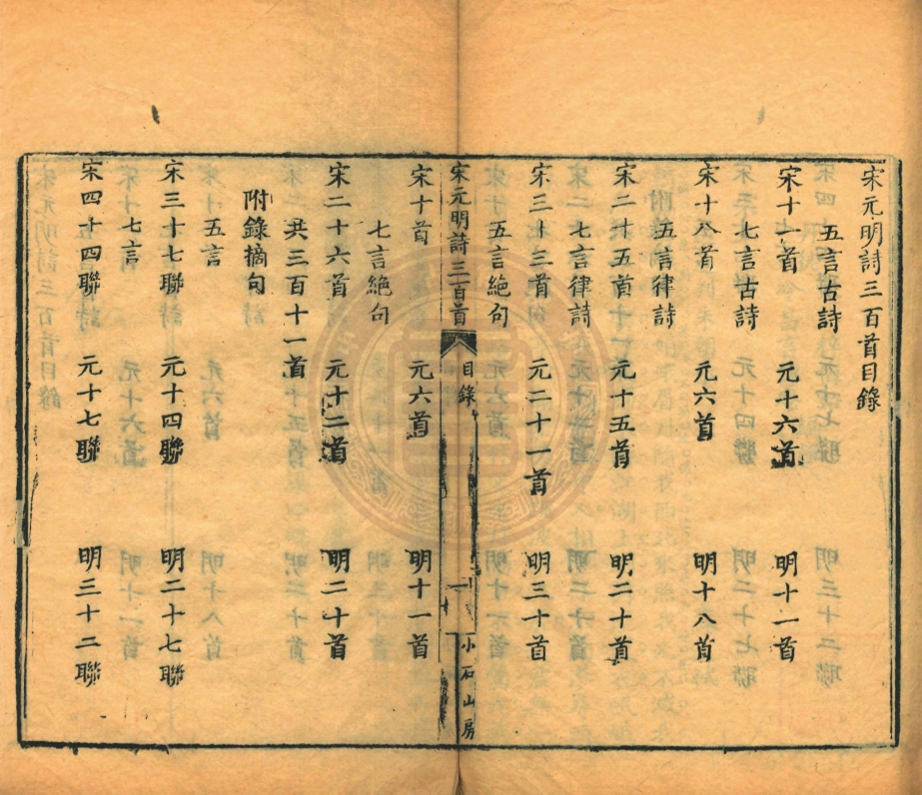 宋元明詩三百首目錄
五言古詩
宋十一首 元十六首 明十一首
七言古詩
宋十八首 元六首 明十八首
五言律詩
宋二十五首 元十五首 明二十首
七言律詩
宋三十三首 元二十一首 明三十首
五言絕句
宋元明詩三百首 目錄 一 小石山房
宋十首 元六首 明十一首
七言絕句
宋二十六首 元十二首 明二十首
共三百十一首
附錄摘句
五言
宋三十七聯 元十四聯 明二十七聯
七言
宋四十四聯 元十七聯 明三十二聯